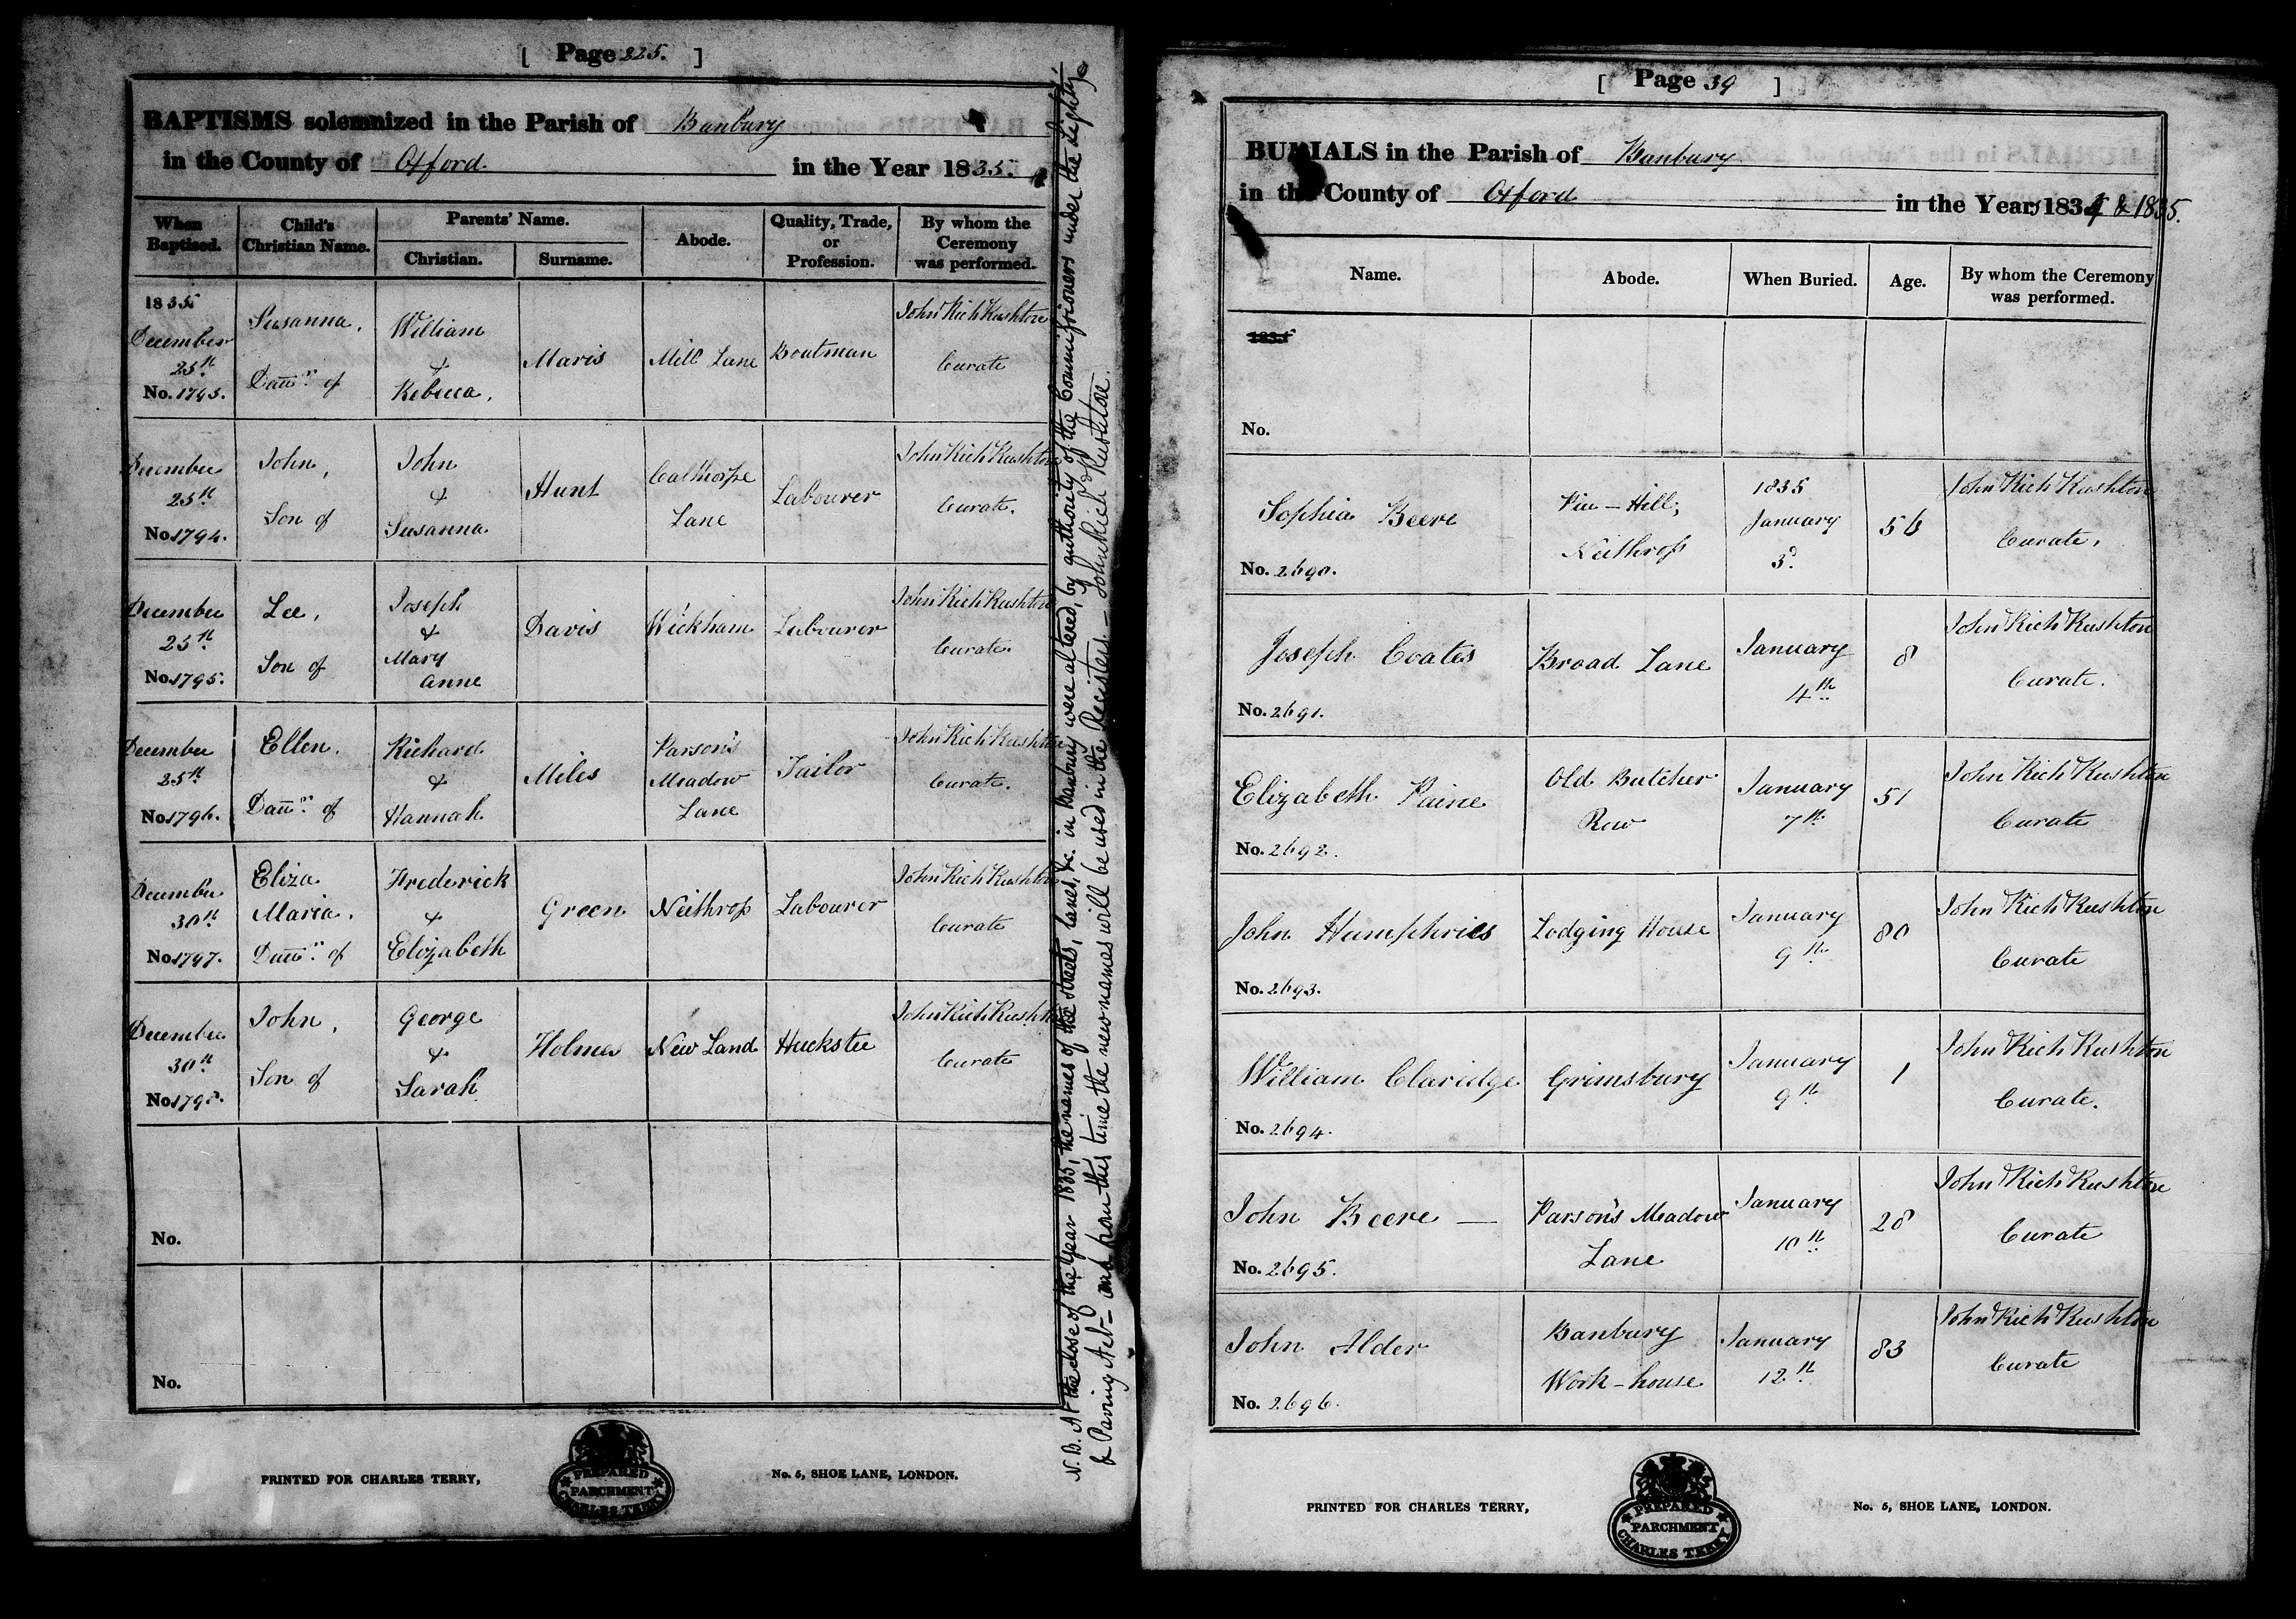 [ Page 225. ]
BAPTISMS solemnized in the Parish of Banbury
in the County of Oxford in the Year 1835.
When Baptised. Child's Christian Name. Parents' Name. Christian. Surname. Abode. Quality, Trade, or Profession. By whom the Ceremony was performed.
1835
December 25th No. 1793. Susanna, Daur. of William & Rebecca, Maris Mill Lane Boatman John Rich Rushton Curate
December 25th No. 1794. John, Son of John & Susanna Hunt Calthorpe Lane Labourer John Rich Rushton Curate.
December 25th No. 1795. Lee, Son of Joseph & Mary Anne Davis Wickham Labourer John Rich Rushton Curate.
December 25th No. 1796. Ellen. Daur. of Richard & Hannah Miles Parson's Meadow Lane Tailor John Rich Rushton Curate.
December 30th No. 1797. Eliza Maria. Daur. of Frederick & Elizabeth Green Neithrop Labourer John Rich Rushton Curate
December 30th No. 1798. John, Son of George & Sarah Holmes New Land Huckster John Rich Rushton Curate
No.
No.
N.B. At the close of the Year 1835, the names of the streets, lanes, &c. in Banbury were altered, by authority of the Commissioners under the Lighting
& Paving Act— and from this time the new names will be used in the Registers.— John Rich Rushton.
PRINTED FOR CHARLES TERRY, No. 5, SHOE LANE, LONDON.
PREPARED
PARCHMENT
CHARLES TERRY
[ Page 39 ]
BURIALS in the Parish of Banbury
in the County of Oxford in the Years 1834 & 1835.
Name. Abode. When Buried. Age. By whom the Ceremony was performed.
1835
No.
Sophia Beere No. 2690. Pin-Hill, Neithrop 1835 January 3d. 56 John Rich Rushton Curate.
Joseph Coates No. 2691. Broad Lane January 4th 8 John Rich Rushton Curate.
Elizabeth Paine No. 2692. Old Butcher Row January 7th 51 John Rich Rushton Curate
John Humphries No. 2693. Lodging House January 9th 80 John Rich Rushton Curate
William Claridge No. 2694. Grimsbury January 9th 1 John Rich Rushton Curate.
John Beere — No. 2695. Parson's Meadow Lane January 10th 28 John Rich Rushton Curate
John Alder No. 2696. Banbury Work-house January 12th 83 John Rich Rushton Curate
PRINTED FOR CHARLES TERRY, No. 5, SHOE LANE, LONDON.
PREPARED
PARCHMENT
CHARLES TERRY